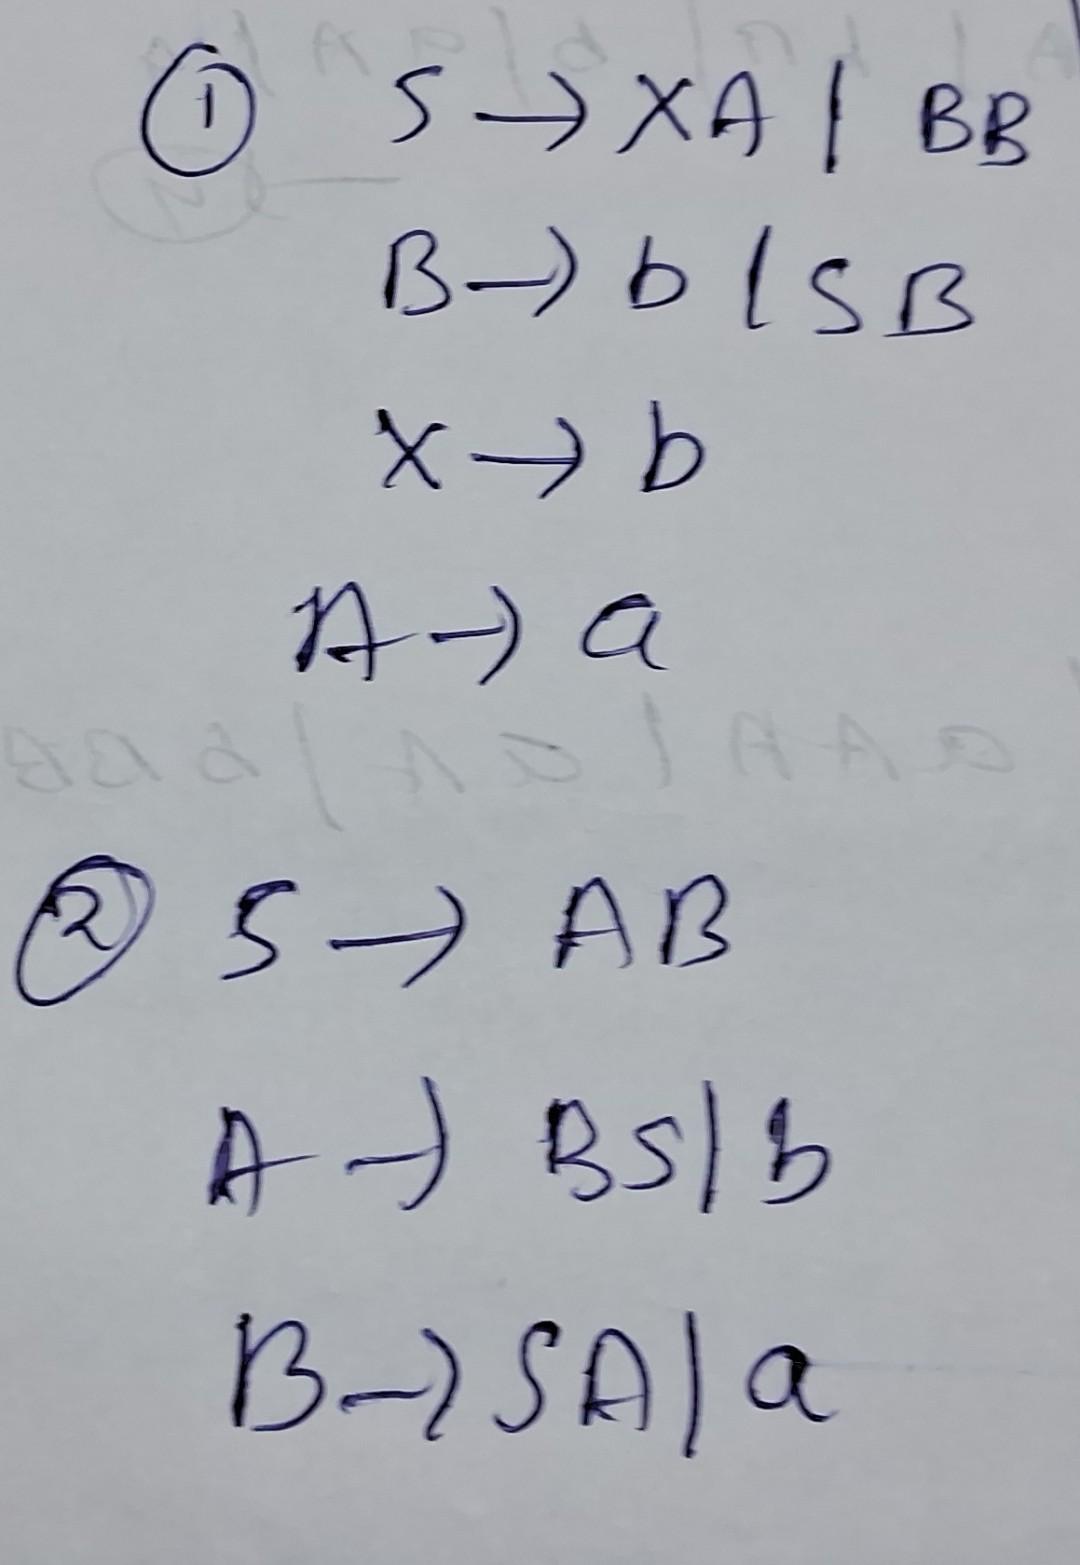 ① S → XA | BB
B → b | SB
X → b
A → a
② S → AB
A → BS | b
B → SA | a